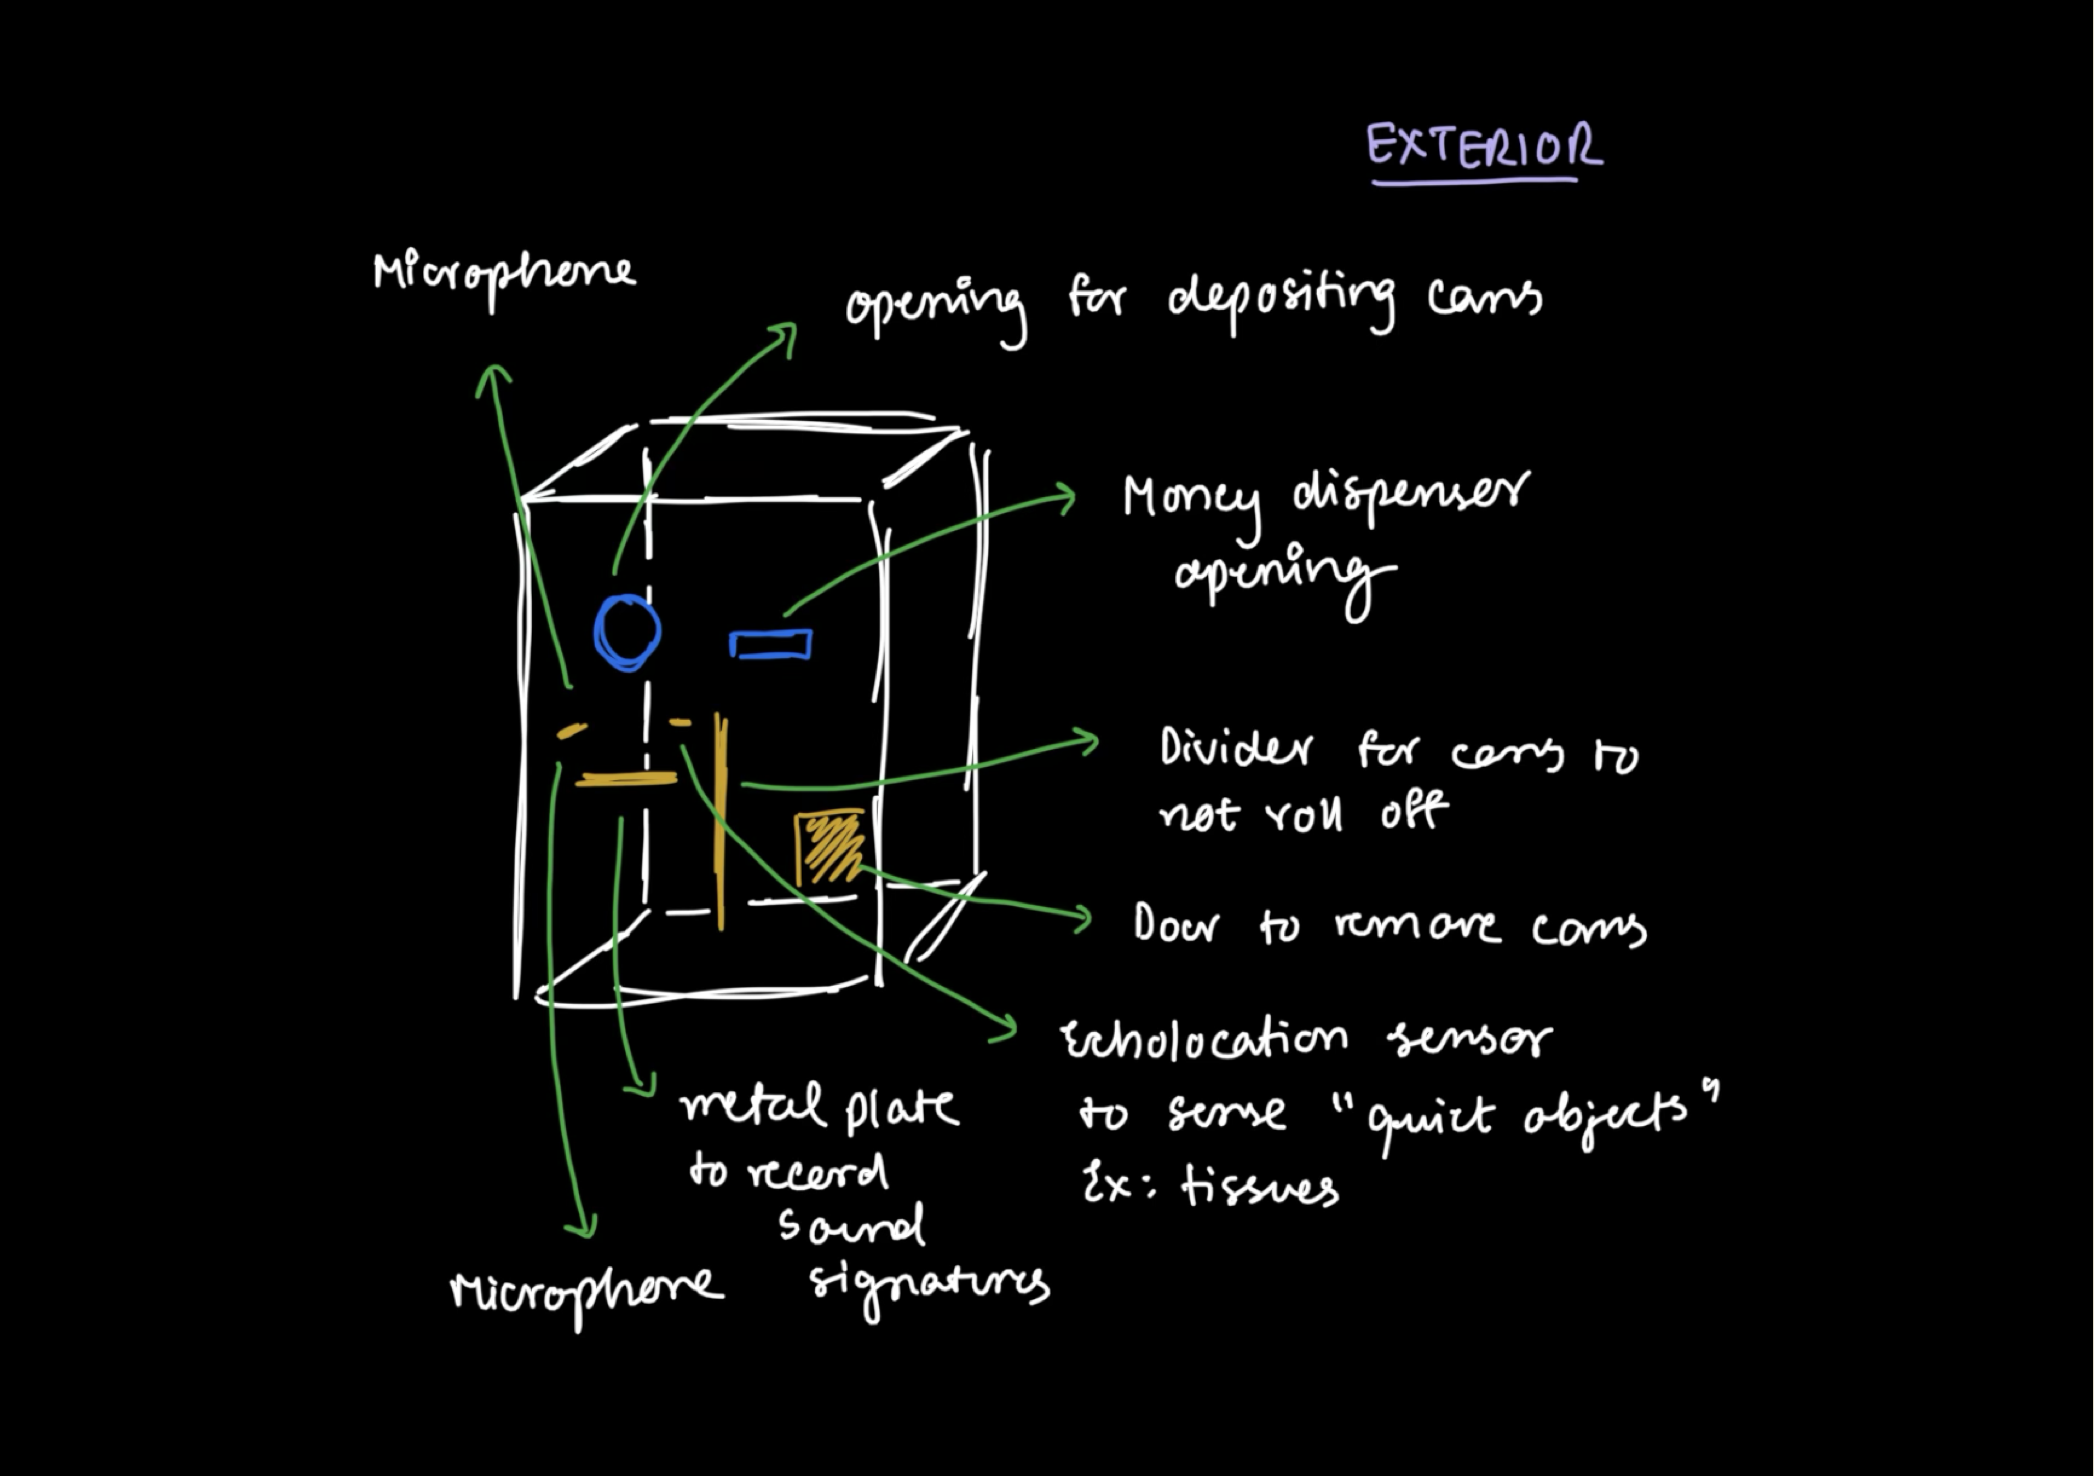 EXTERIOR
Microphone
opening for depositing cans
Money dispenser
opening
Divider for cans to
not roll off
Door to remove cans
Echolocation sensor
to sense "quiet objects"
Ex: tissues
metal plate
to record
sound
signatures
Microphone